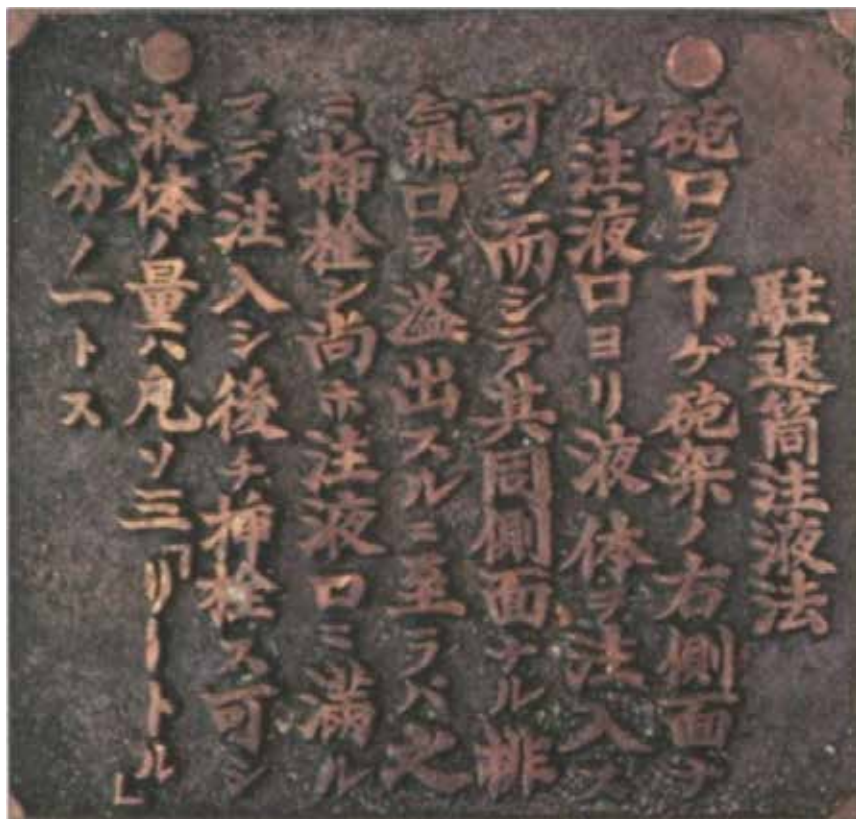 駐退筒注液法
砲口ヲ下ゲ砲架ノ右側面ナ
ル注液口ヨリ液体ヲ注入ス
可シ而シテ其同側面ナル排
氣口ヲ溢出スルニ至ラバ之
ニ挿栓シ尚ホ注液口ニ満ル
マデ注入シ後チ挿栓ス可シ
液体ノ量ハ凡ソ三「リートル」
八分ノ一トス